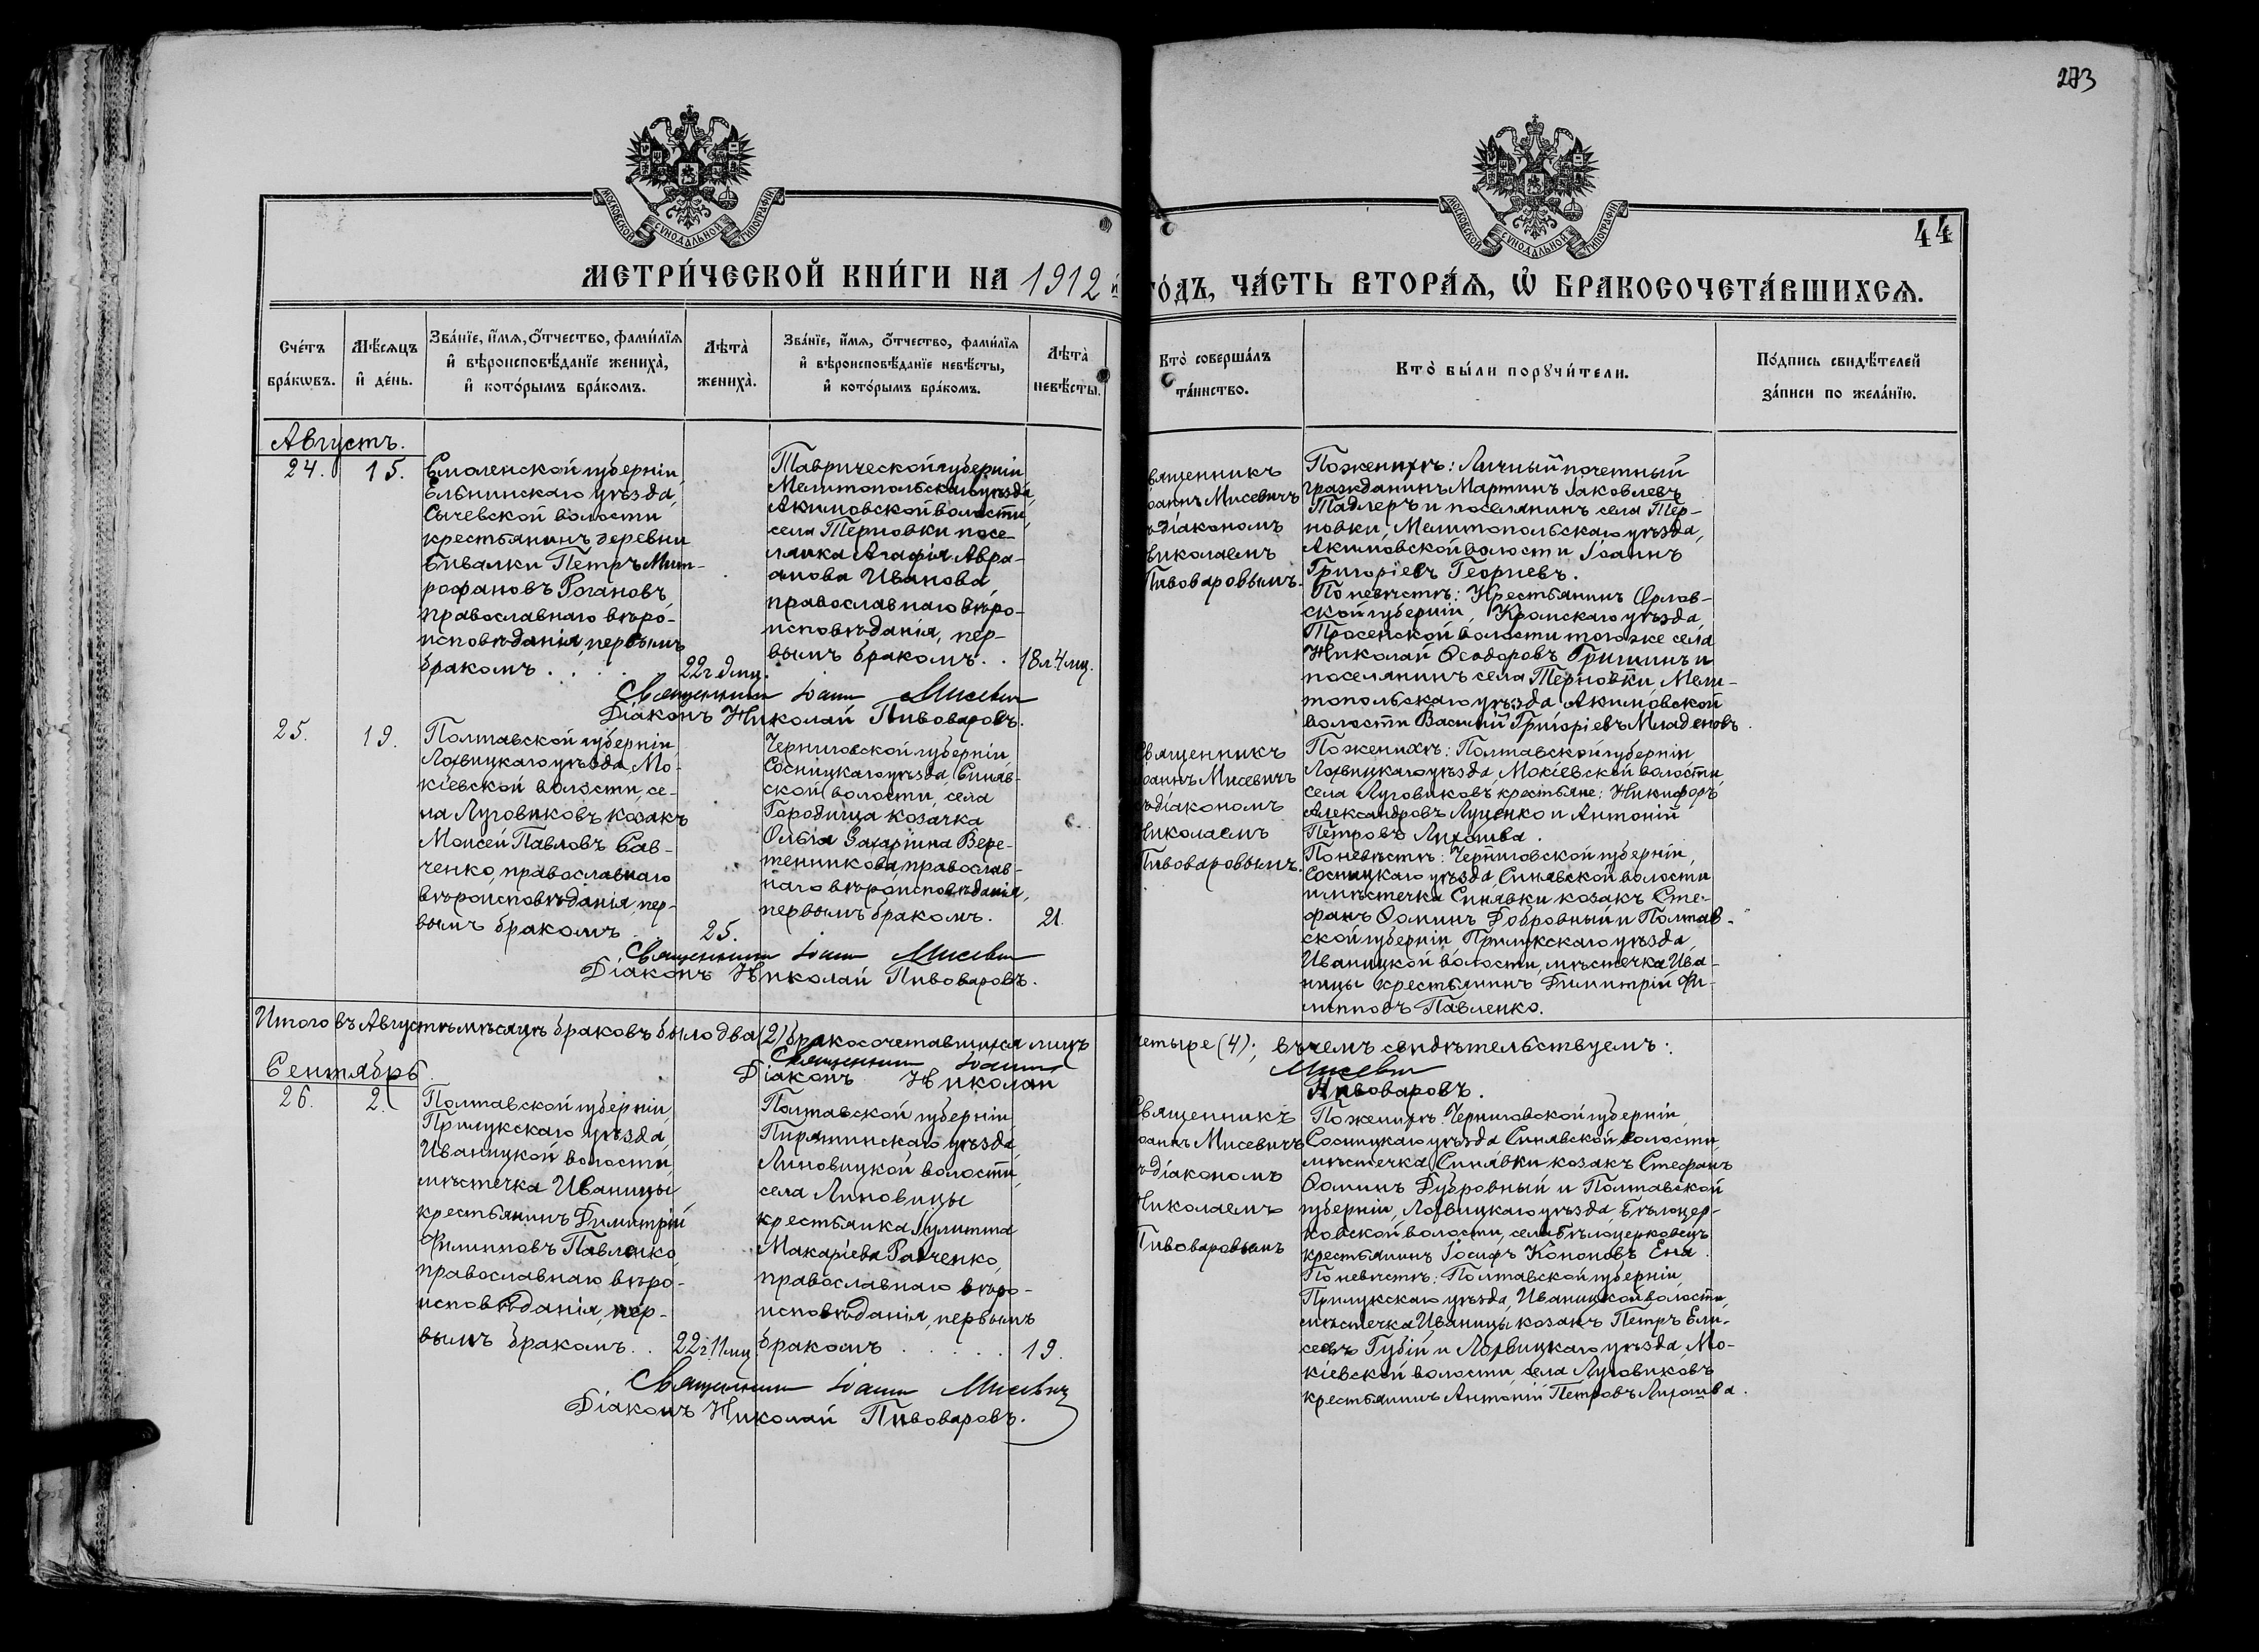 273
МОСКОВСКОЙ СѴНОДАЛЬНОЙ ТИПОГРАФІИ
МОСКОВСКОЙ СѴНОДАЛЬНОЙ ТИПОГРАФІИ
44
МЕТРИ́ЧЕСКОЙ КНИ́ГИ НА 1912 й
ГО́ДЪ, ЧА́СТЬ ВТОРА́Ѧ, Ѽ БРАКОСОЧЕТА́ВШИХСѦ.
Сче́тъ
бра́кѡвъ.
Мѣ́сѧцъ
и҆ де́нь.
Зва́нїе, и҆́мѧ, ѻ҆́тчество, фами́лїѧ
и҆ вѣроисповѣ́данїе жениха̀,
и҆ кото́рымъ бра́комъ.
Лѣта̀
жениха̀.
Зва́нїе, и҆́мѧ, ѻ҆́тчество, фами́лїѧ
и҆ вѣроисповѣ́данїе невѣ́сты,
и҆ кото́рымъ бра́комъ.
Лѣта̀
невѣ́сты.
Кто̀ соверша́лъ
та́инство.
Кто̀ бы́ли порꙋчи́тели.
По́дпись свидѣ́телей
за́писи по жела́нїю.
Августъ.
24.
15.
Смоленской губерніи,
Ельнинскаго уѣзда,
Сычевской волости
крестьянинъ деревни
Бивалки Петръ Мит-
рофановъ Рогановъ
православнаго вѣро-
исповѣданія, первымъ
бракомъ . . . .
22 г. 9 мц.
Таврической губерніи
Мелитопольскаго уѣзда,
Акимовской волости,
села Терновки посе-
лянка Агафія Авра-
амова Иванова
православнаго вѣро-
исповѣданія, пер-
вымъ бракомъ. .
18 л. 4 мц.
Священникъ
Іоаннъ Мисевичъ
съ діакономъ
Николаемъ
Пивоваровымъ.
По женихѣ: Личный почетный
гражданинъ Мартинъ Іаковлевъ
Тадлеръ и поселянинъ села Тер-
новки, Мелитопольскаго уѣзда,
Акимовской волости Іоаннъ
Григоріевъ Георгіевъ.
По невѣстѣ: Крестьянинъ Орлов-
ской губерніи, Кромскаго уѣзда,
Тросенской волости того же села
Николай Ѳеодоровъ Гришинъ и
поселянинъ села Терновки Мели-
топольскаго уѣзда Акимовской
волости Василій Григоріевъ Младеновъ.
Священникъ Іоаннъ Мисевич
Діаконъ Николай Пивоваровъ.
25.
19.
Полтавской губерніи
Лохвицкаго уѣзда, Мо-
кіевской волости, се-
ла Луговиковъ козакъ
Моисей Павловъ Сав-
ченко, православнаго
вѣроисповѣданія, пер-
вымъ бракомъ
25.
Черниговской губерніи,
Сосницкаго уѣзда, Синяв-
ской волости, села
Городища козачка
Ольга Захаріина Вере-
тенникова, православ-
наго вѣроисповѣданія,
первымъ бракомъ.
21.
Священникъ
Іоаннъ Мисевичъ
съ діакономъ
Николаемъ
Пивоваровымъ.
По женихѣ: Полтавской губерніи
Лохвицкаго уѣзда, Мокіевской волости
села Луговиковъ крестьяне: Никифоръ
Александровъ Луценко и Антоній
Петровъ Лихошва.
По невѣстѣ: Черниговской губерніи,
Сосницкаго уѣзда, Синявской волости
и мѣстечка Синявки козакъ Сте-
фанъ Ѳоминъ Добровный и Полтав-
ской губерніи Прилукскаго уѣзда
Иваницкой волости, мѣстечка Ива-
ницы крестьянинъ Димитрій Фи-
липповъ Павленко.
Священникъ Іоаннъ Мисевич
Діаконъ Николай Пивоваровъ.
Итого въ Августѣ мѣсяцѣ браковъ было два (2) бракосочетавшихся лицъ
четыре (4); въ чемъ свидѣтельствуемъ:
Священникъ Іоаннъ Мисевич
Діаконъ Николай Пивоваровъ.
Сентябрь.
26.
2.
Полтавской губерніи,
Прилукскаго уѣзда,
Иваницкой волости,
мѣстечка Иваницы
крестьянинъ Димитрій
Филипповъ Павленко
православнаго вѣро-
исповѣданія, пер-
вымъ бракомъ. .
22 г. 11 мц.
Полтавской губерніи
Пирятинскаго уѣзда,
Линовицкой волости,
села Линовицы
крестьянка Іулитта
Макаріева Радченко,
православнаго вѣро-
исповѣданія, первымъ
бракомъ . . . . .
19.
Священникъ
Іоаннъ Мисевичъ
съ діакономъ
Николаемъ
Пивоваровымъ
По женихѣ: Черниговской губерніи,
Сосницкаго уѣзда Синявской волости
мѣстечка Синявки козакъ Стефанъ
Ѳоминъ Дубровный и Полтавской
губерніи, Лохвицкаго уѣзда, Бѣлоцер-
ковской волости, села Бѣлоцерковецъ
крестьянинъ Іосифъ Кононовъ Ена.
По невѣстѣ: Полтавской губерніи,
Прилукскаго уѣзда, Иваницкой волости,
мѣстечка Иваницы козакъ Петръ Ели-
сеевъ Губій и Лохвицкаго уѣзда, Мо-
кіевской волости, села Луговиковъ
крестьянинъ Антоній Петровъ Лихошва.
Священникъ Іоаннъ Мисевич
Діаконъ Николай Пивоваровъ.